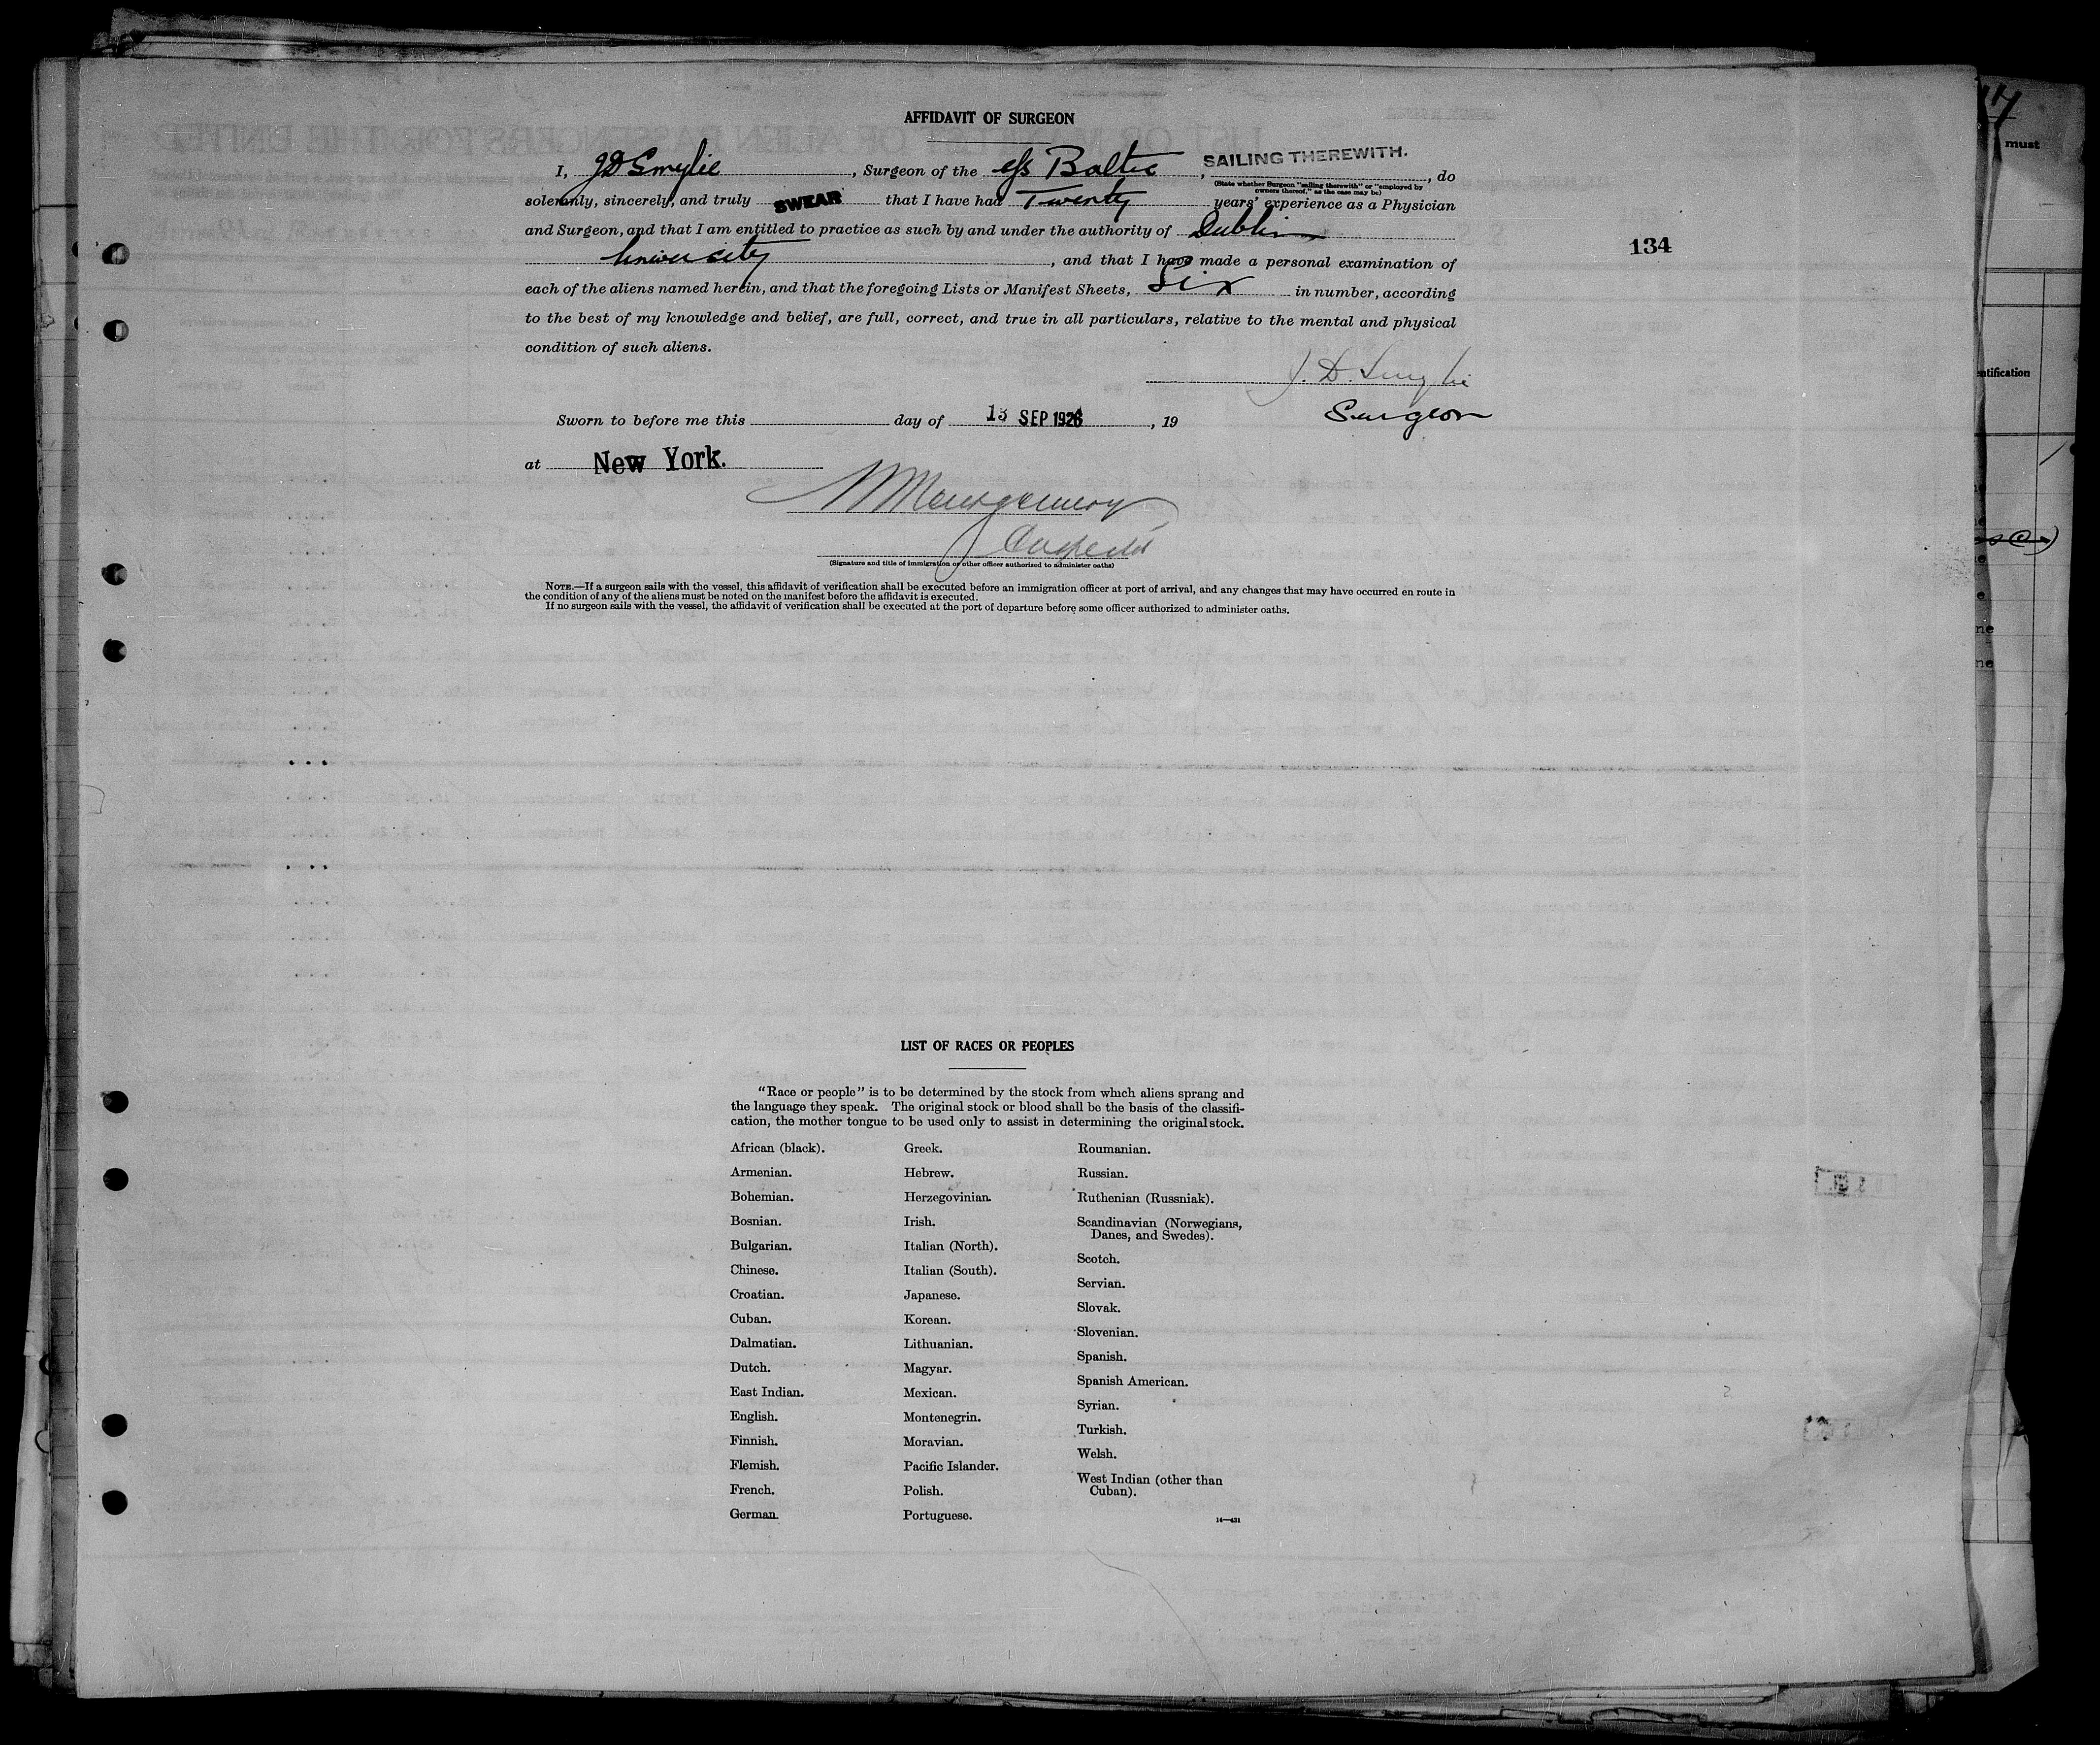 AFFIDAVIT OF SURGEON
I, J D Smylie, Surgeon of the s/s Baltic, SAILING THEREWITH., do
(State whether Surgeon "sailing therewith" or "employed by
owners thereof," as the case may be)
solemnly, sincerely, and truly SWEAR that I have had Twenty years' experience as a Physician
and Surgeon, and that I am entitled to practice as such by and under the authority of Dublin
University, and that I have made a personal examination of
134
each of the aliens named herein, and that the foregoing Lists or Manifest Sheets, Six in number, according
to the best of my knowledge and belief, are full, correct, and true in all particulars, relative to the mental and physical
condition of such aliens.
J. D. Smylie
Surgeon
Sworn to before me this day of 13 SEP 1926, 19
at New York.
Montgomery
Inspector
(Signature and title of immigration or other officer authorized to administer oaths)
NOTE.—If a surgeon sails with the vessel, this affidavit of verification shall be executed before an immigration officer at port of arrival, and any changes that may have occurred en route in
the condition of any of the aliens must be noted on the manifest before the affidavit is executed.
If no surgeon sails with the vessel, the affidavit of verification shall be executed at the port of departure before some officer authorized to administer oaths.
LIST OF RACES OR PEOPLES
"Race or people" is to be determined by the stock from which aliens sprang and
the language they speak. The original stock or blood shall be the basis of the classifi-
cation, the mother tongue to be used only to assist in determining the original stock.
African (black).
Armenian.
Bohemian.
Bosnian.
Bulgarian.
Chinese.
Croatian.
Cuban.
Dalmatian.
Dutch.
East Indian.
English.
Finnish.
Flemish.
French.
German.
Greek.
Hebrew.
Herzegovinian.
Irish.
Italian (North).
Italian (South).
Japanese.
Korean.
Lithuanian.
Magyar.
Mexican.
Montenegrin.
Moravian.
Pacific Islander.
Polish.
Portuguese.
Roumanian.
Russian.
Ruthenian (Russniak).
Scandinavian (Norwegians,
Danes, and Swedes).
Scotch.
Servian.
Slovak.
Slovenian.
Spanish.
Spanish American.
Syrian.
Turkish.
Welsh.
West Indian (other than
Cuban).
14—431
must